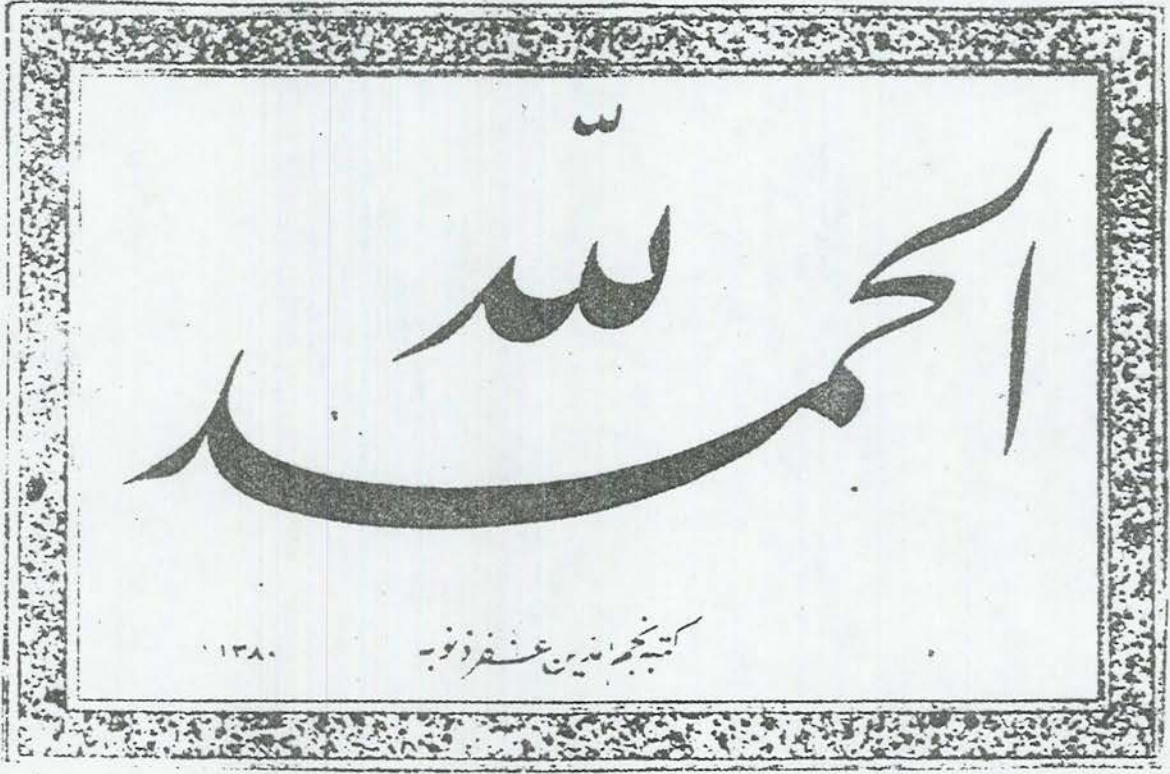 الحمد لله
كتبه نجم الدين غفر ذنوبه
١٣٨٠